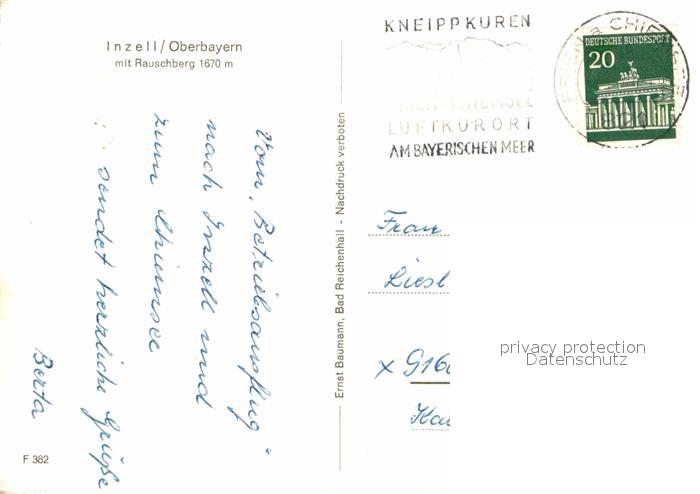 Inzell/Oberbayern
mit Rauschberg 1670 m
Vom „Betriebsausflug"
nach Inzell und
zum Chiemsee
sendet herzliche Grüße
Berta
F 382
Ernst Baumann, Bad Reichenhall - Nachdruck verboten
KNEIPPKUREN
LUFTKURORT
AM BAYERISCHEN MEER
DEUTSCHE BUNDESPOST
20
Frau
Liesl
x G16
Ka
privacy protection
Datenschutz